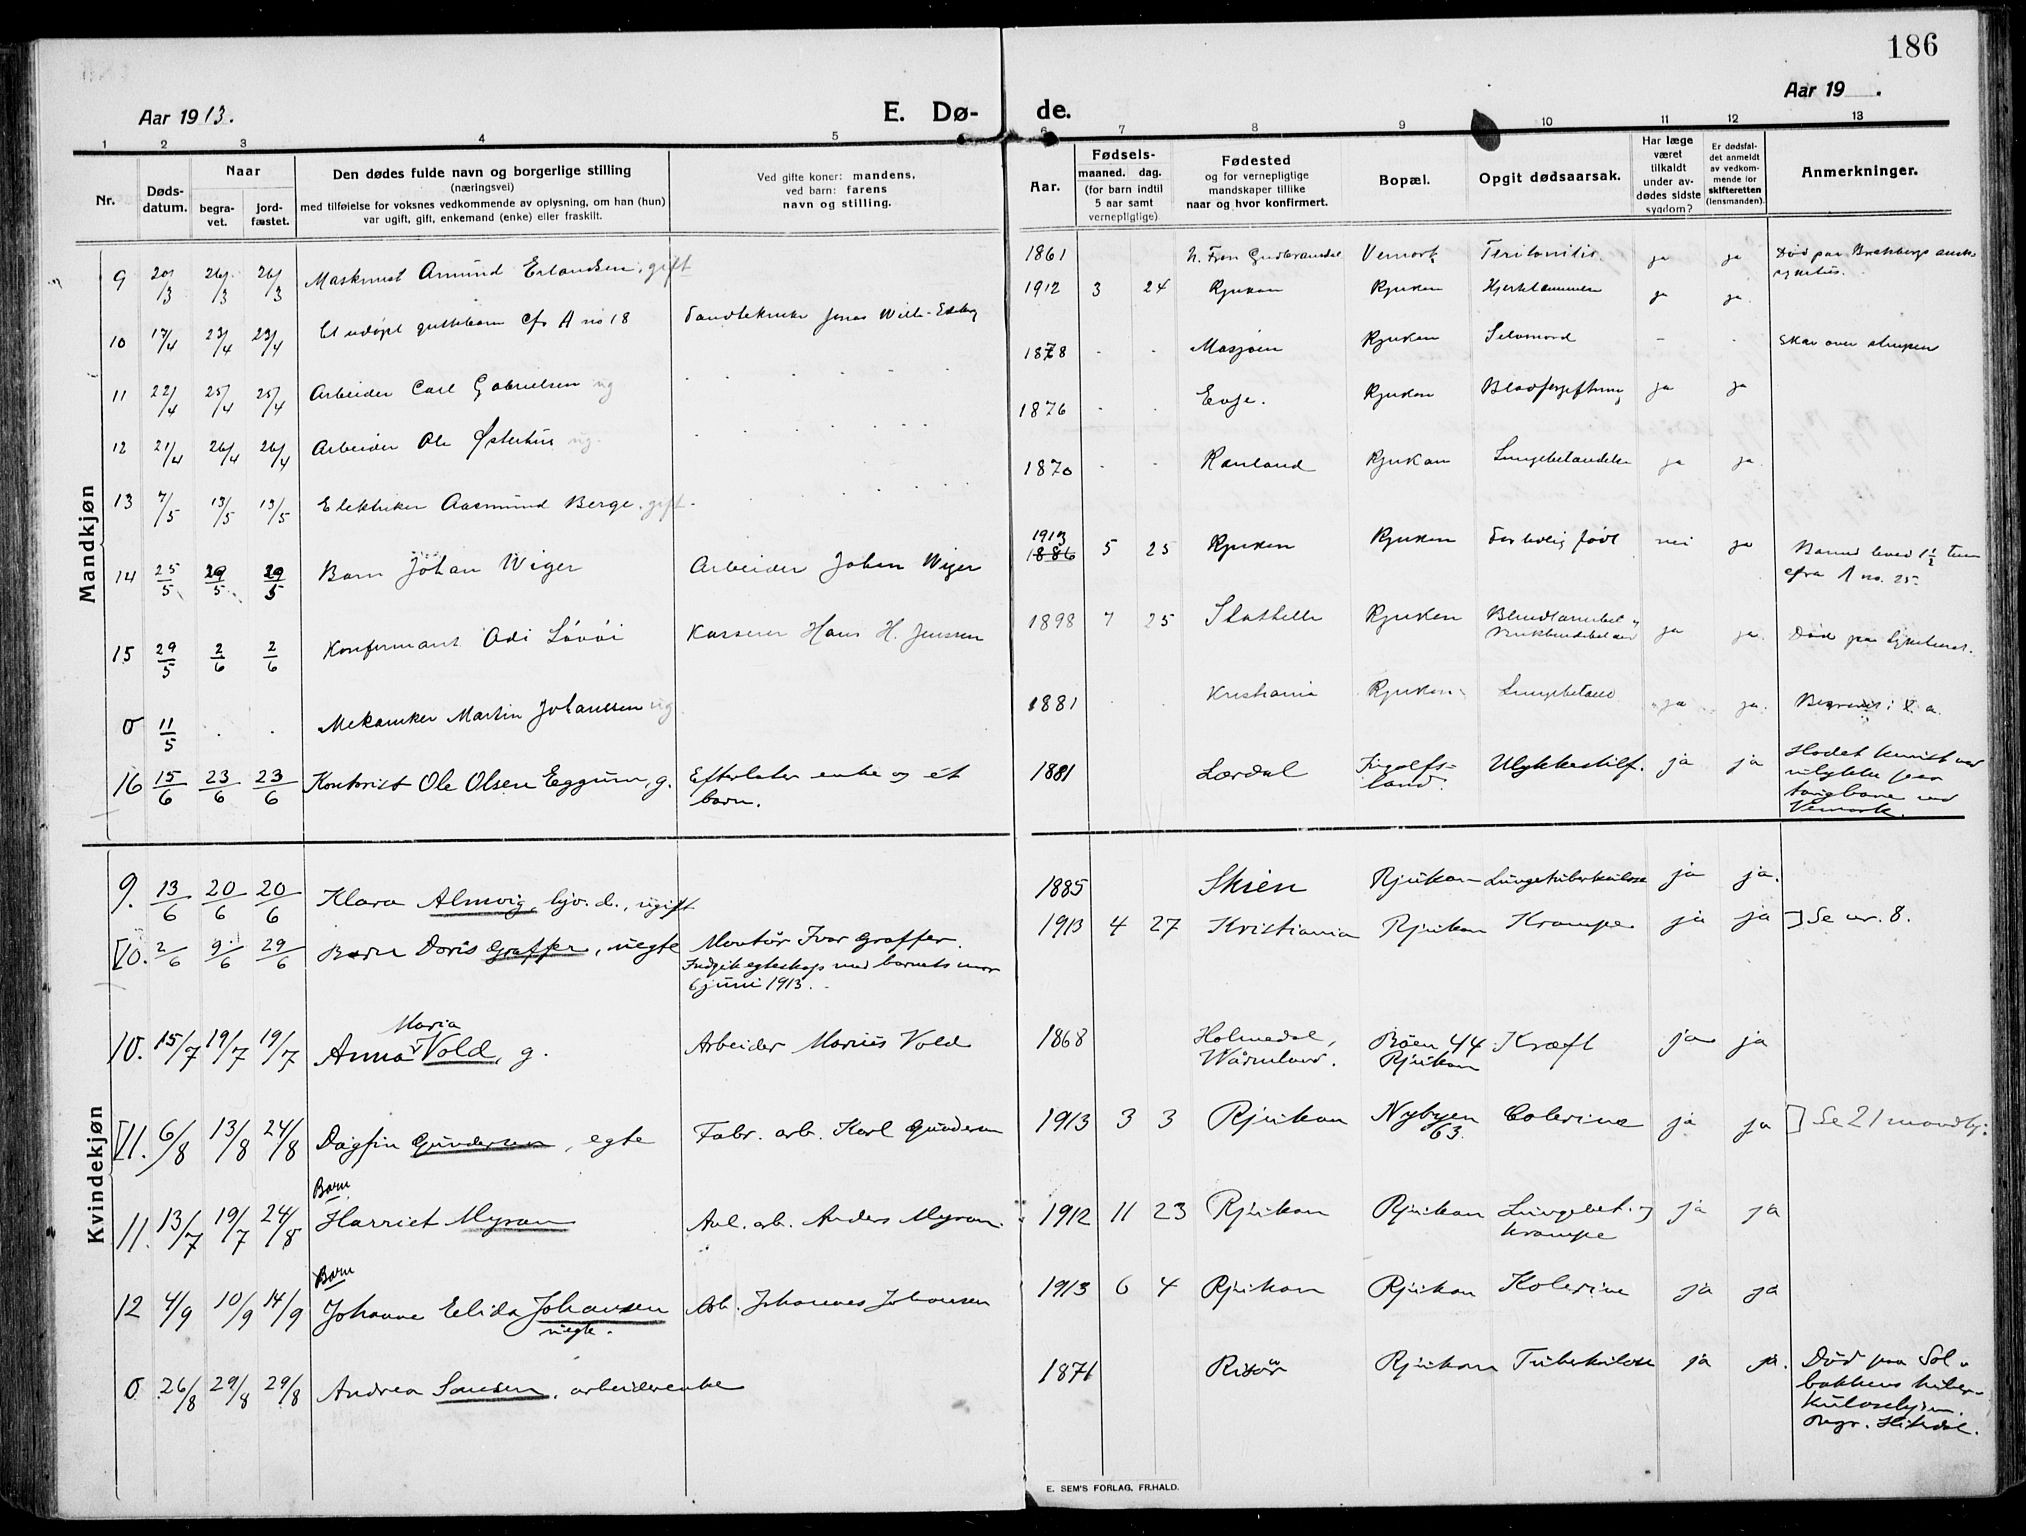 186
Aar 1913.
E. Dø-
de.
Aar 19 .
1 2 3 4 5 6 7 8 9 10 11 12 13
Nr.
Døds-
datum.
Naar
begra-
vet.
jord-
fæstet.
Den dødes fulde navn og borgerlige stilling
(næringsvei)
med tilføielse for voksnes vedkommende av oplysning, om han (hun)
var ugift, gift, enkemand (enke) eller fraskilt.
Ved gifte koner: mandens,
ved barn: farens
navn og stilling.
Aar.
Fødsels-
maaned. dag.
(for barn indtil
5 aar samt
vernepligtige)
Fødested
og for vernepligtige
mandskaper tillike
naar og hvor konfirmert.
Bopæl.
Opgit dødsaarsak.
Har læge
været
tilkaldt
under av-
dødes sidste
sygdom?
Er dødsfal-
det anmeldt
av vedkom-
mende for
skifteretten
(lensmanden).
Anmerkninger.
Mandkjøn
9 20/3 26/3 26/3 Maskinist Amund Erlandsen, gift 1861 N. Fron Gudbransdal Vemork Peritonitis ja ja Død paa
10 17/4 23/4 23/4 Et udøpt guttebarn cfr A no 18 Jonas 1912 3 24 Rjukan Rjukan ja ja
11 22/4 25/4 25/4 Arbeider Carl Gabrielsen ug 1878 . . Mosjøen Rjukan Selvmord - . Skar over strupen
12 21/4 26/4 26/4 Arbeider Ole Østerhus ug. 1876 . . Evje. Rjukan Blodforgiftning ja ja
13 7/5 13/5 13/5 Elektriker Aasmund Berge, gift. 1870 . . Rauland Rjukan Lungebetændelse ja ja
14 25/5 29/5 29/5 Barn Johan Wiger Arbeider Johan Wiger 1913 1886 5 25 Rjukan Rjukan For tidlig født nei ja Barnet leved 1½ time
cfra A no. 25
15 29/5 2/6 2/6 Konfirmant Odi Løvøi Kasserer Hans H. Jenssen 1898 7 25 Stathelle Rjukan Blindtarmbet. og
ja ja. Død paa Sykehuset.
0 11/5 . . Mekaniker Martin Johanssen ug 1881 Kristiania Rjukan Lungebetænd ja ja.
16 15/6 23/6 23/6 Kontorist Ole Olsen Eggum, g. Efterlater enke og ét
barn. 1881 Lærdal Ingolfs-
land. Ulykkestilf. ja ja Hodet knust ved
ulykke paa
taugbane ved
Vemork.
Kvindekjøn
9. 13/6 20/6 20/6 Klara Almvig, hjv. d., ugift 1885 Skien Rjukan Lungetuberkulose ja ja.
[10. 2/6 9/6 29/6 Barn Doris Graffer, uegte Montør Ivar Graffer.
Indgik egteskap med barnets mor
6 juni 1913. 1913 4 27 Kristiania Rjukan Krampe ja ja ] Se nr. 8.
10. 15/7 19/7 19/7 Anna Maria Vold, g. Arbeider Marius Vold 1868 Holmedal,
Wärmland. Bøen 44
Rjukan Kræft ja ja
[11. 6/8 13/8 24/8 Dagfin Gundersen, egte Fabr. arb. Karl Gundersen 1913 3 3 Rjukan Nybyen
63. Colerine ja ja ] Se 21 mandkj:
11. 13/7 19/7 24/8 Barn
Harriet Myran Anl. arb. Anders Myran. 1912 11 23 Rjukan Rjukan Lungebet. og
krampe ja ja
12 4/9 10/9 14/9 Barn
Johanne Elida Johansen
uegte. Arb. Johannes Johansen 1913 6 4 Rjukan Rjukan Kolerine ja ja
0 26/8 29/8 29/8 Andrea Sansen, arbeiderenke 1871 Risør Rjukan Tuberkulose ja ja. Død paa Sol-
bakkens tuber-
kulosehjem.
Begr. Hitterdal.
E. SEM'S FORLAG, FR.HALD.